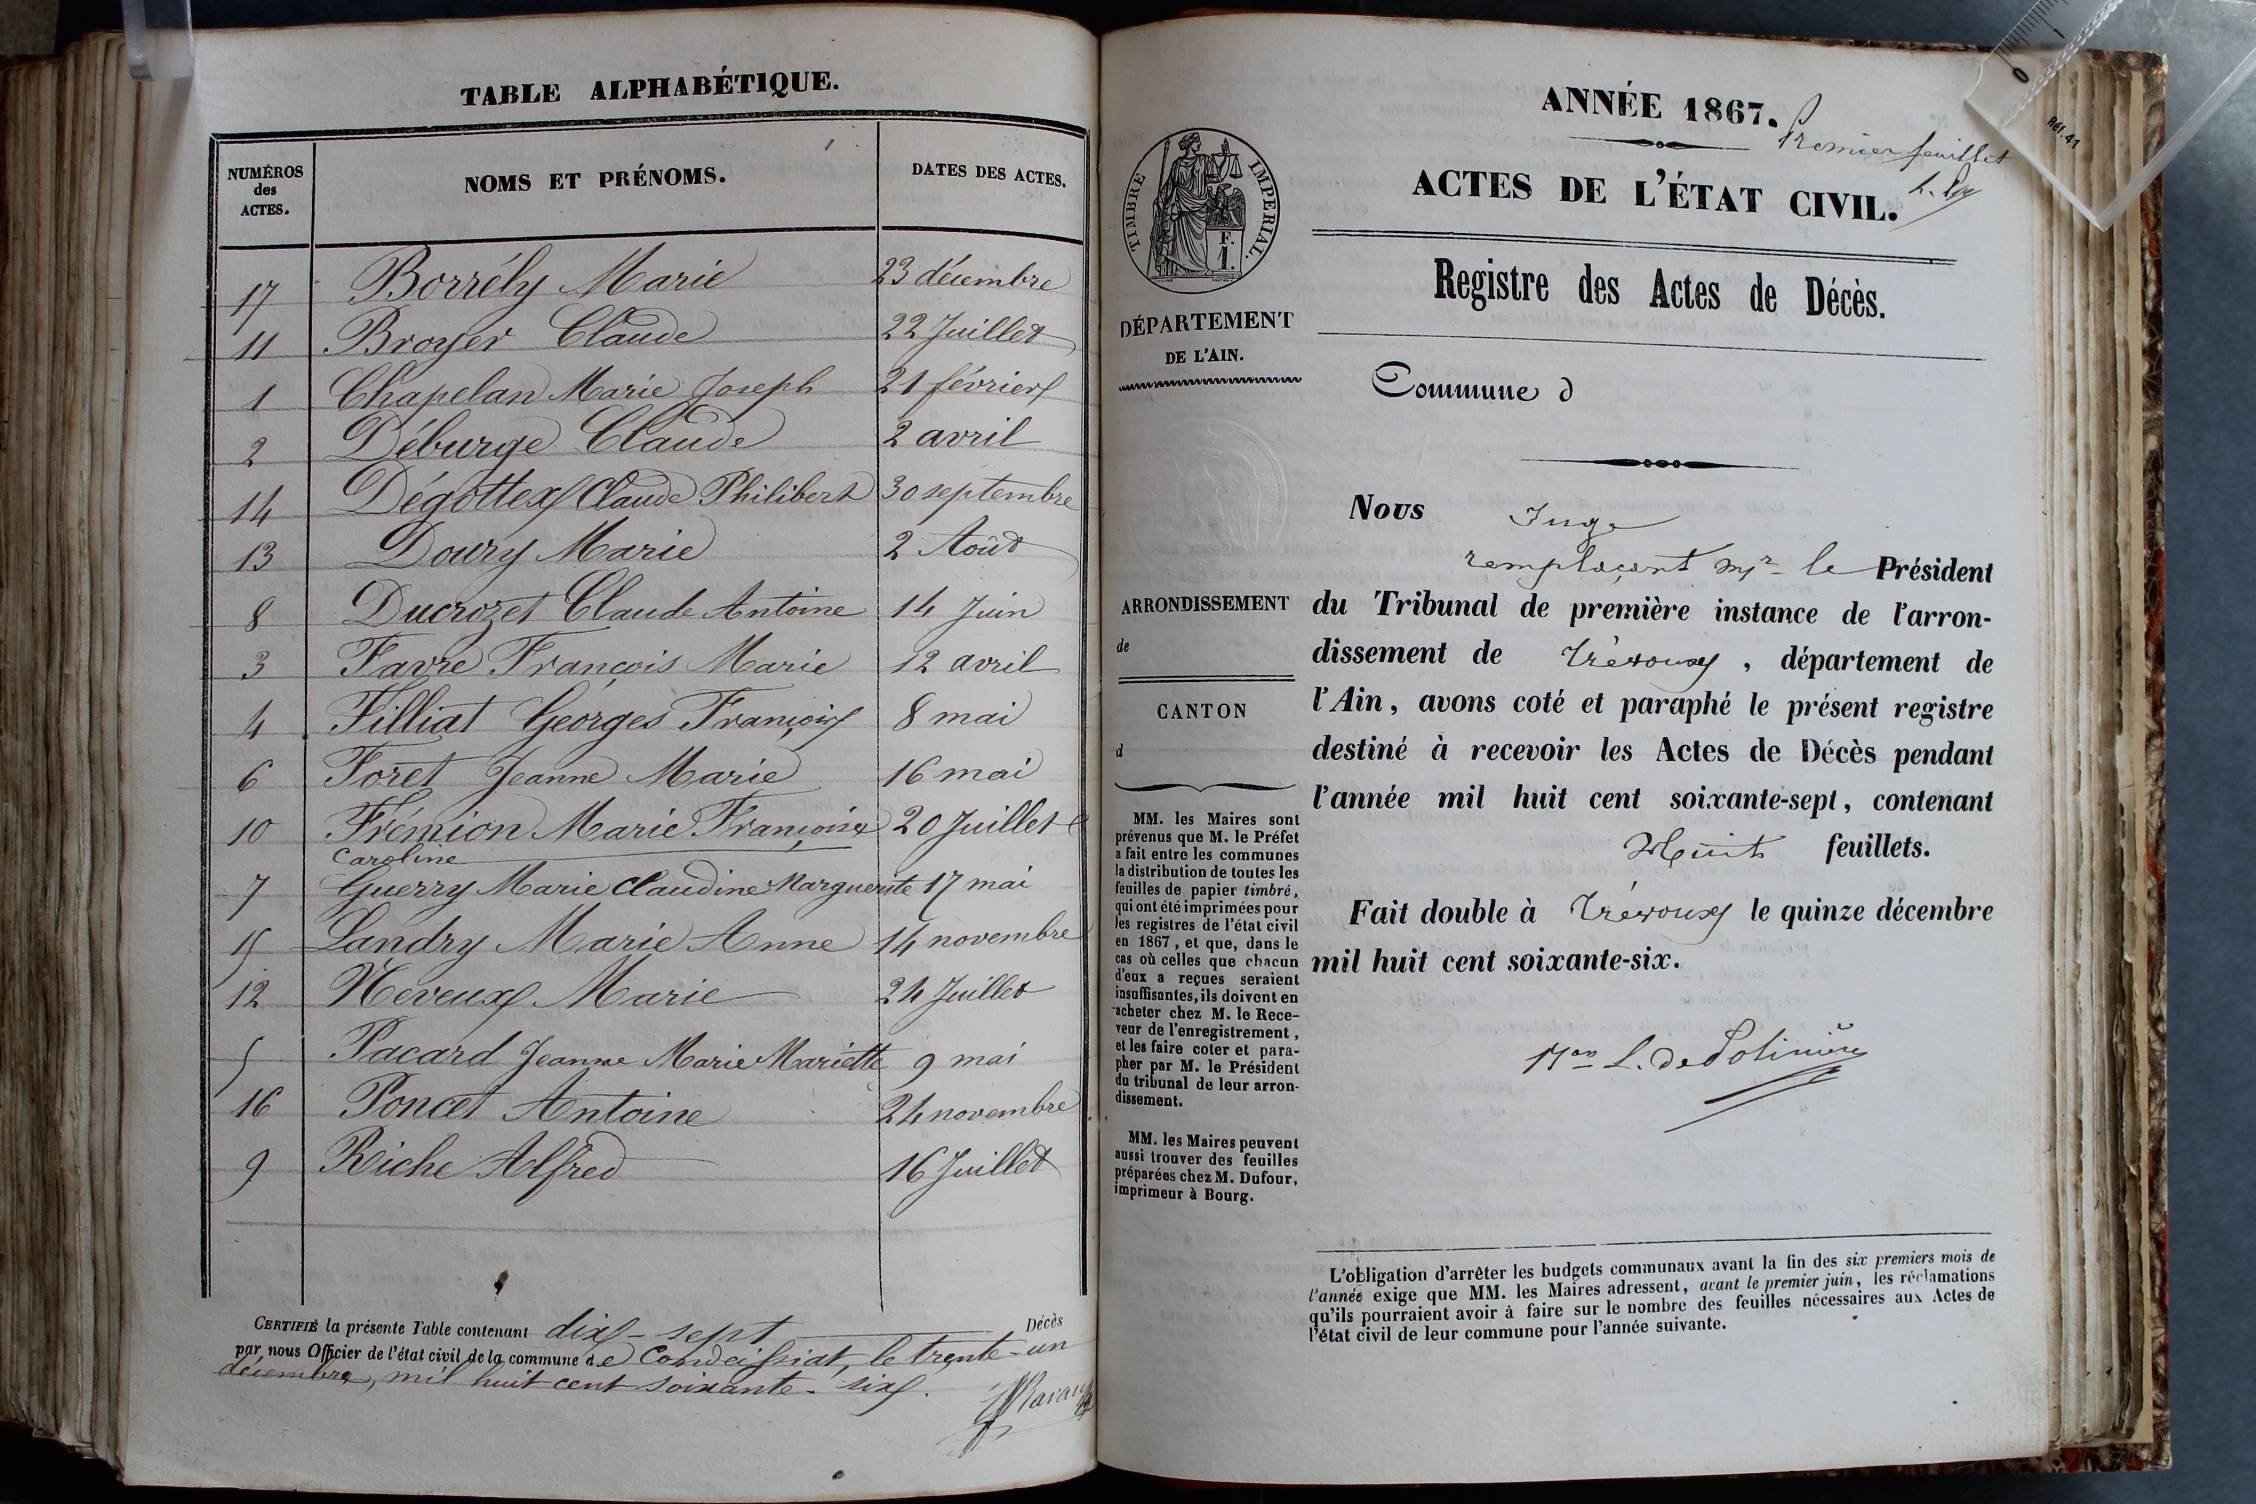 TABLE ALPHABÉTIQUE.
NUMÉROS des ACTES. NOMS ET PRÉNOMS. DATES DES ACTES.
17 Borrély Marie 23 décembre
11 Broyer Claude 22 Juillet
1 Chapelan Marie Joseph 21 février
2 Déburge Claude 2 avril
14 Dégottex Claude Philibert 30 septembre
13 Doury Marie 2 Août
8 Ducrozet Claude Antoine 14 Juin
3 Favre François Marie 12 avril
4 Filliat Georges François 8 mai
6 Foret Jeanne Marie 16 mai
10 Frémion Marie Françoise 20 Juillet
Caroline
7 Guerry Marie Claudine Marguerite 17 mai
15 Landry Marie Anne 14 novembre
12 Neveux Marie 24 Juillet
5 Pacard Jeanne Marie Mariette 9 mai
16 Poncet Antoine 24 novembre
9 Riche Alfred 16 Juillet
CERTIFIÉ la présente Table contenant dix-sept Décès
par nous Officier de l'état civil de la commune de Condeissiat, le trente-un
décembre, mil huit cent soixante-six.
ANNÉE 1867.
Premier feuillet
ACTES DE L'ÉTAT CIVIL.
Registre des Actes de Décès.
TIMBRE IMPERIAL.
F.
1.
DÉPARTEMENT
DE L'AIN.
Commune d
Nous Juge
remplaçant Mr le Président
du Tribunal de première instance de l'arron-
dissement de Trévoux, département de
l'Ain, avons coté et paraphé le présent registre
destiné à recevoir les Actes de Décès pendant
l'année mil huit cent soixante-sept, contenant
Huit feuillets.
Fait double à Trévoux le quinze décembre
mil huit cent soixante-six.
ARRONDISSEMENT
de
CANTON
d
MM. les Maires sont
prévenus que M. le Préfet
a fait entre les communes
la distribution de toutes les
feuilles de papier timbré,
qui ont été imprimées pour
les registres de l'état civil
en 1867, et que, dans le
cas où celles que chacun
d'eux a reçues seraient
insuffisantes, ils doivent en
acheter chez M. le Rece-
veur de l'enregistrement,
et les faire coter et para-
pher par M. le Président
du tribunal de leur arron-
dissement.
MM. les Maires peuvent
aussi trouver des feuilles
préparées chez M. Dufour,
imprimeur à Bourg.
L'obligation d'arrêter les budgets communaux avant la fin des six premiers mois de
l'année exige que MM. les Maires adressent, avant le premier juin, les réclamations
qu'ils pourraient avoir à faire sur le nombre des feuilles nécessaires aux Actes de
l'état civil de leur commune pour l'année suivante.
0
Réf. 41